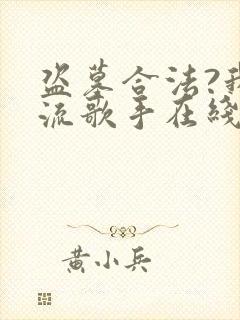 盗墓合法?我
流歌手在线
黄小兵